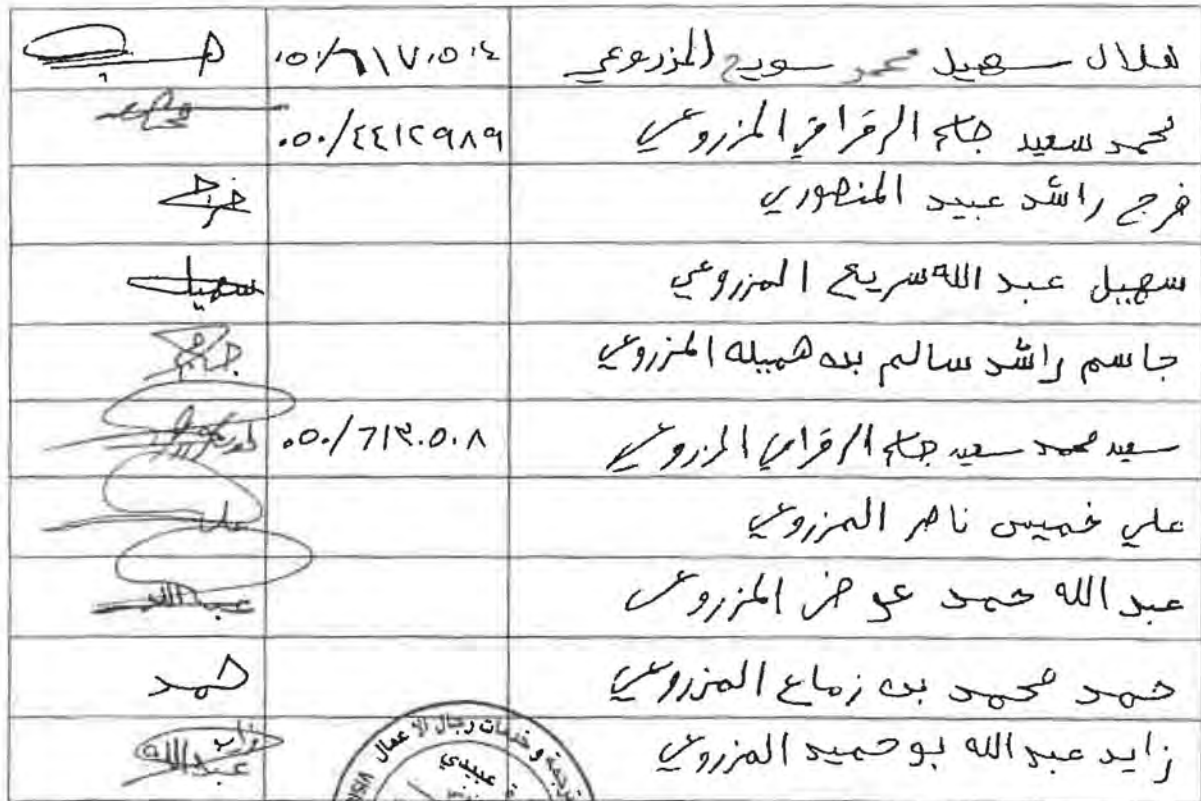 هلال سهيل محمد سويح المزروعي ٠٥٠/٦١٧٠٥٠٤
محمد سعيد جاسم الرقراقي المزروعي ٠٥٠/٤٤١٢٩٨٩
فرج راشد عبيد المنصوري فرج
سهيل عبد الله سريع المزروعي سهيل
جاسم راشد سالم بن هميله المزروعي جاسم
سعيد محمد سعيد جاسم المزروعي ٠٥٠/٦١٣٠٥٠٨
علي خميس ناصر المزروعي علي
عبد الله حمد عوض المزروعي عبدالله
حمد محمد بن زماع المزروعي حمد
زايد عبد الله بو حميد المزروعي زايد عبدالله
ترجمة و خدمات رجال الأعمال
عبيدي